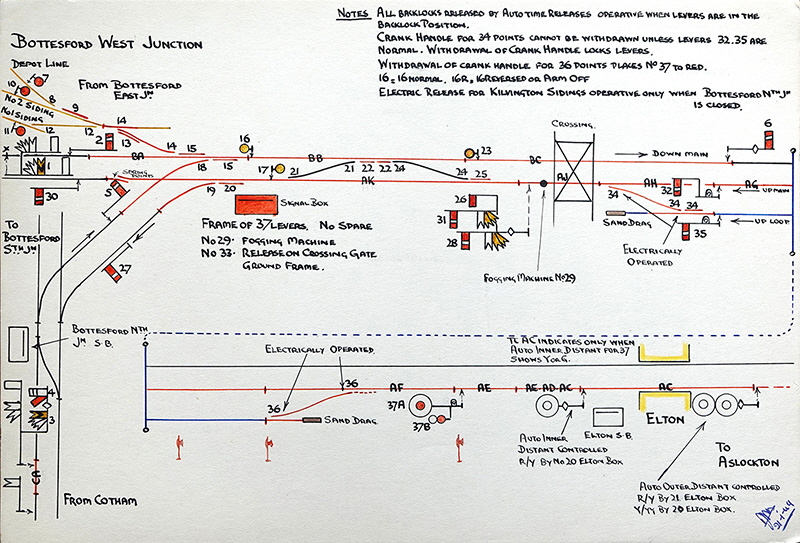 NOTES ALL BACKLOCKS RELEASED BY AUTO TIME RELEASES OPERATIVE WHEN LEVERS ARE IN THE
BACKLOCK POSITION.
CRANK HANDLE FOR 34 POINTS CANNOT BE WITHDRAWN UNLESS LEVERS 32.35 ARE
NORMAL. WITHDRAWAL OF CRANK HANDLE LOCKS LEVERS.
WITHDRAWAL OF CRANK HANDLE FOR 36 POINTS PLACES No 37 TO RED.
16 = 16 NORMAL. 16R = 16 REVERSED OR ARM OFF
ELECTRIC RELEASE FOR KILVINGTON SIDINGS OPERATIVE ONLY WHEN BOTTESFORD NTH JN
IS CLOSED.
BOTTESFORD WEST JUNCTION
DEPOT LINE
FROM BOTTESFORD
EAST JN
10 7
8 9
No 2 SIDING
No 1 SIDING
11 12 12 14
2 13
14 15
X 1 BA 18 15
16
BB
17 21
21 22 22 24
24 25
23
BC
CROSSING
DOWN MAIN
6
SPRING
POINTS
30
5
19 20
AK
AJ
34
AH 32
AG UP MAIN
34 34
UP LOOP
SAND DRAG
35
ELECTRICALLY
OPERATED
SIGNAL BOX
FRAME OF 37 LEVERS, NO SPARE
No 29 · FOGGING MACHINE
No 33 · RELEASE ON CROSSING GATE
GROUND FRAME.
26
31
28
FOGGING MACHINE No 29
TO
BOTTESFORD
STH JN
27
BOTTESFORD NTH
JN S.B.
4
3
CA
FROM COTHAM
ELECTRICALLY OPERATED
36
36
SAND DRAG
AF
37A
37B
AE
AE·AD·AC
TC AC INDICATES ONLY WHEN
AUTO INNER DISTANT FOR 37
SHOWS Y OR G.
AC
AUTO INNER
DISTANT CONTROLLED
R/Y BY No 20 ELTON BOX
ELTON S·B.
ELTON
TO
ASLOCKTON
AUTO OUTER DISTANT CONTROLLED
R/Y BY 21 ELTON BOX
Y/YY BY 20 ELTON BOX.